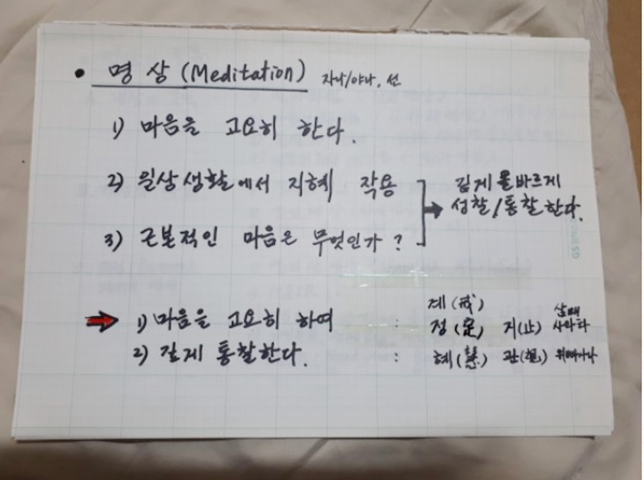 • 명상 (Meditation) 자나/야나, 선
1) 마음을 고요히 한다.
2) 일상생활에서 지혜 작용
깊게 올바르게
성찰/통찰한다.
3) 근본적인 마음은 무엇인가?
계(戒)
1) 마음을 고요히 하여 : 정(定) 지(止) 사마타
2) 깊게 통찰한다. : 혜(慧) 관(觀) 위빠사나